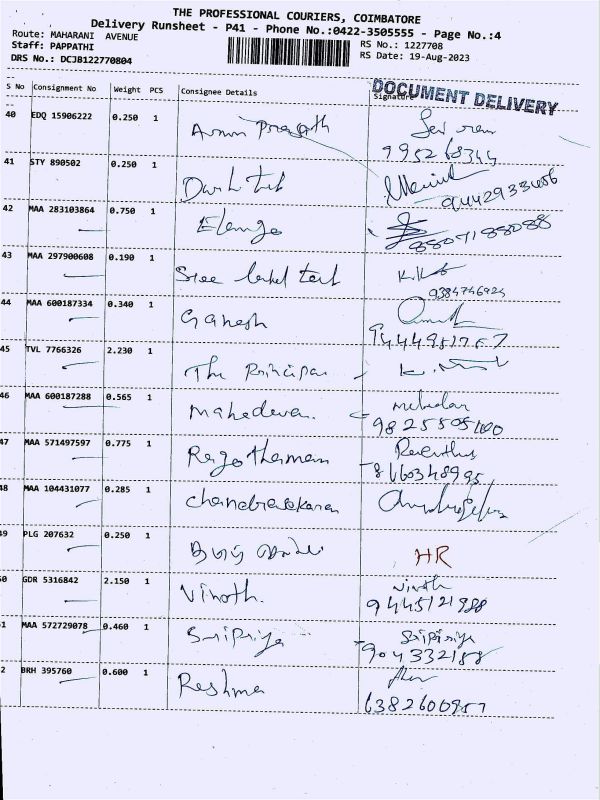 THE PROFESSIONAL COURIERS, COIMBATORE
Delivery Runsheet - P41 - Phone No.:0422-3505555 - Page No.:4
Route: MAHARANI AVENUE RS No.: 1227708
Staff: PAPPATHI RS Date: 19-Aug-2023
DRS No.: DCJB122770804
DOCUMENT DELIVERY
S No Consignment No Weight PCS Consignee Details Signature
40 EDQ 15906222 0.250 1 Arun Prasath
995268344
41 STY 890502 0.250 1
9442933406
42 MAA 283103864 0.750 1 Elango
8807188088
43 MAA 297900608 0.190 1 Sree label text
9384746924
44 MAA 600187334 0.340 1 Ganesh
45 TVL 7766326 2.230 1 The Principal
46 MAA 600187288 0.565 1 Mahadevan.
9825505100
47 MAA 571497597 0.775 1 Ragothaman
8660348995
48 MAA 104431077 0.285 1 Chandrasekaran
49 PLG 207632 0.250 1 HR
50 GDR 5316842 2.150 1 Vinoth. Vinoth
9445121988
51 MAA 572729078 0.460 1 Sripriya Sripriya
904332188
52 BRH 395760 0.600 1 Reshma
6382600957